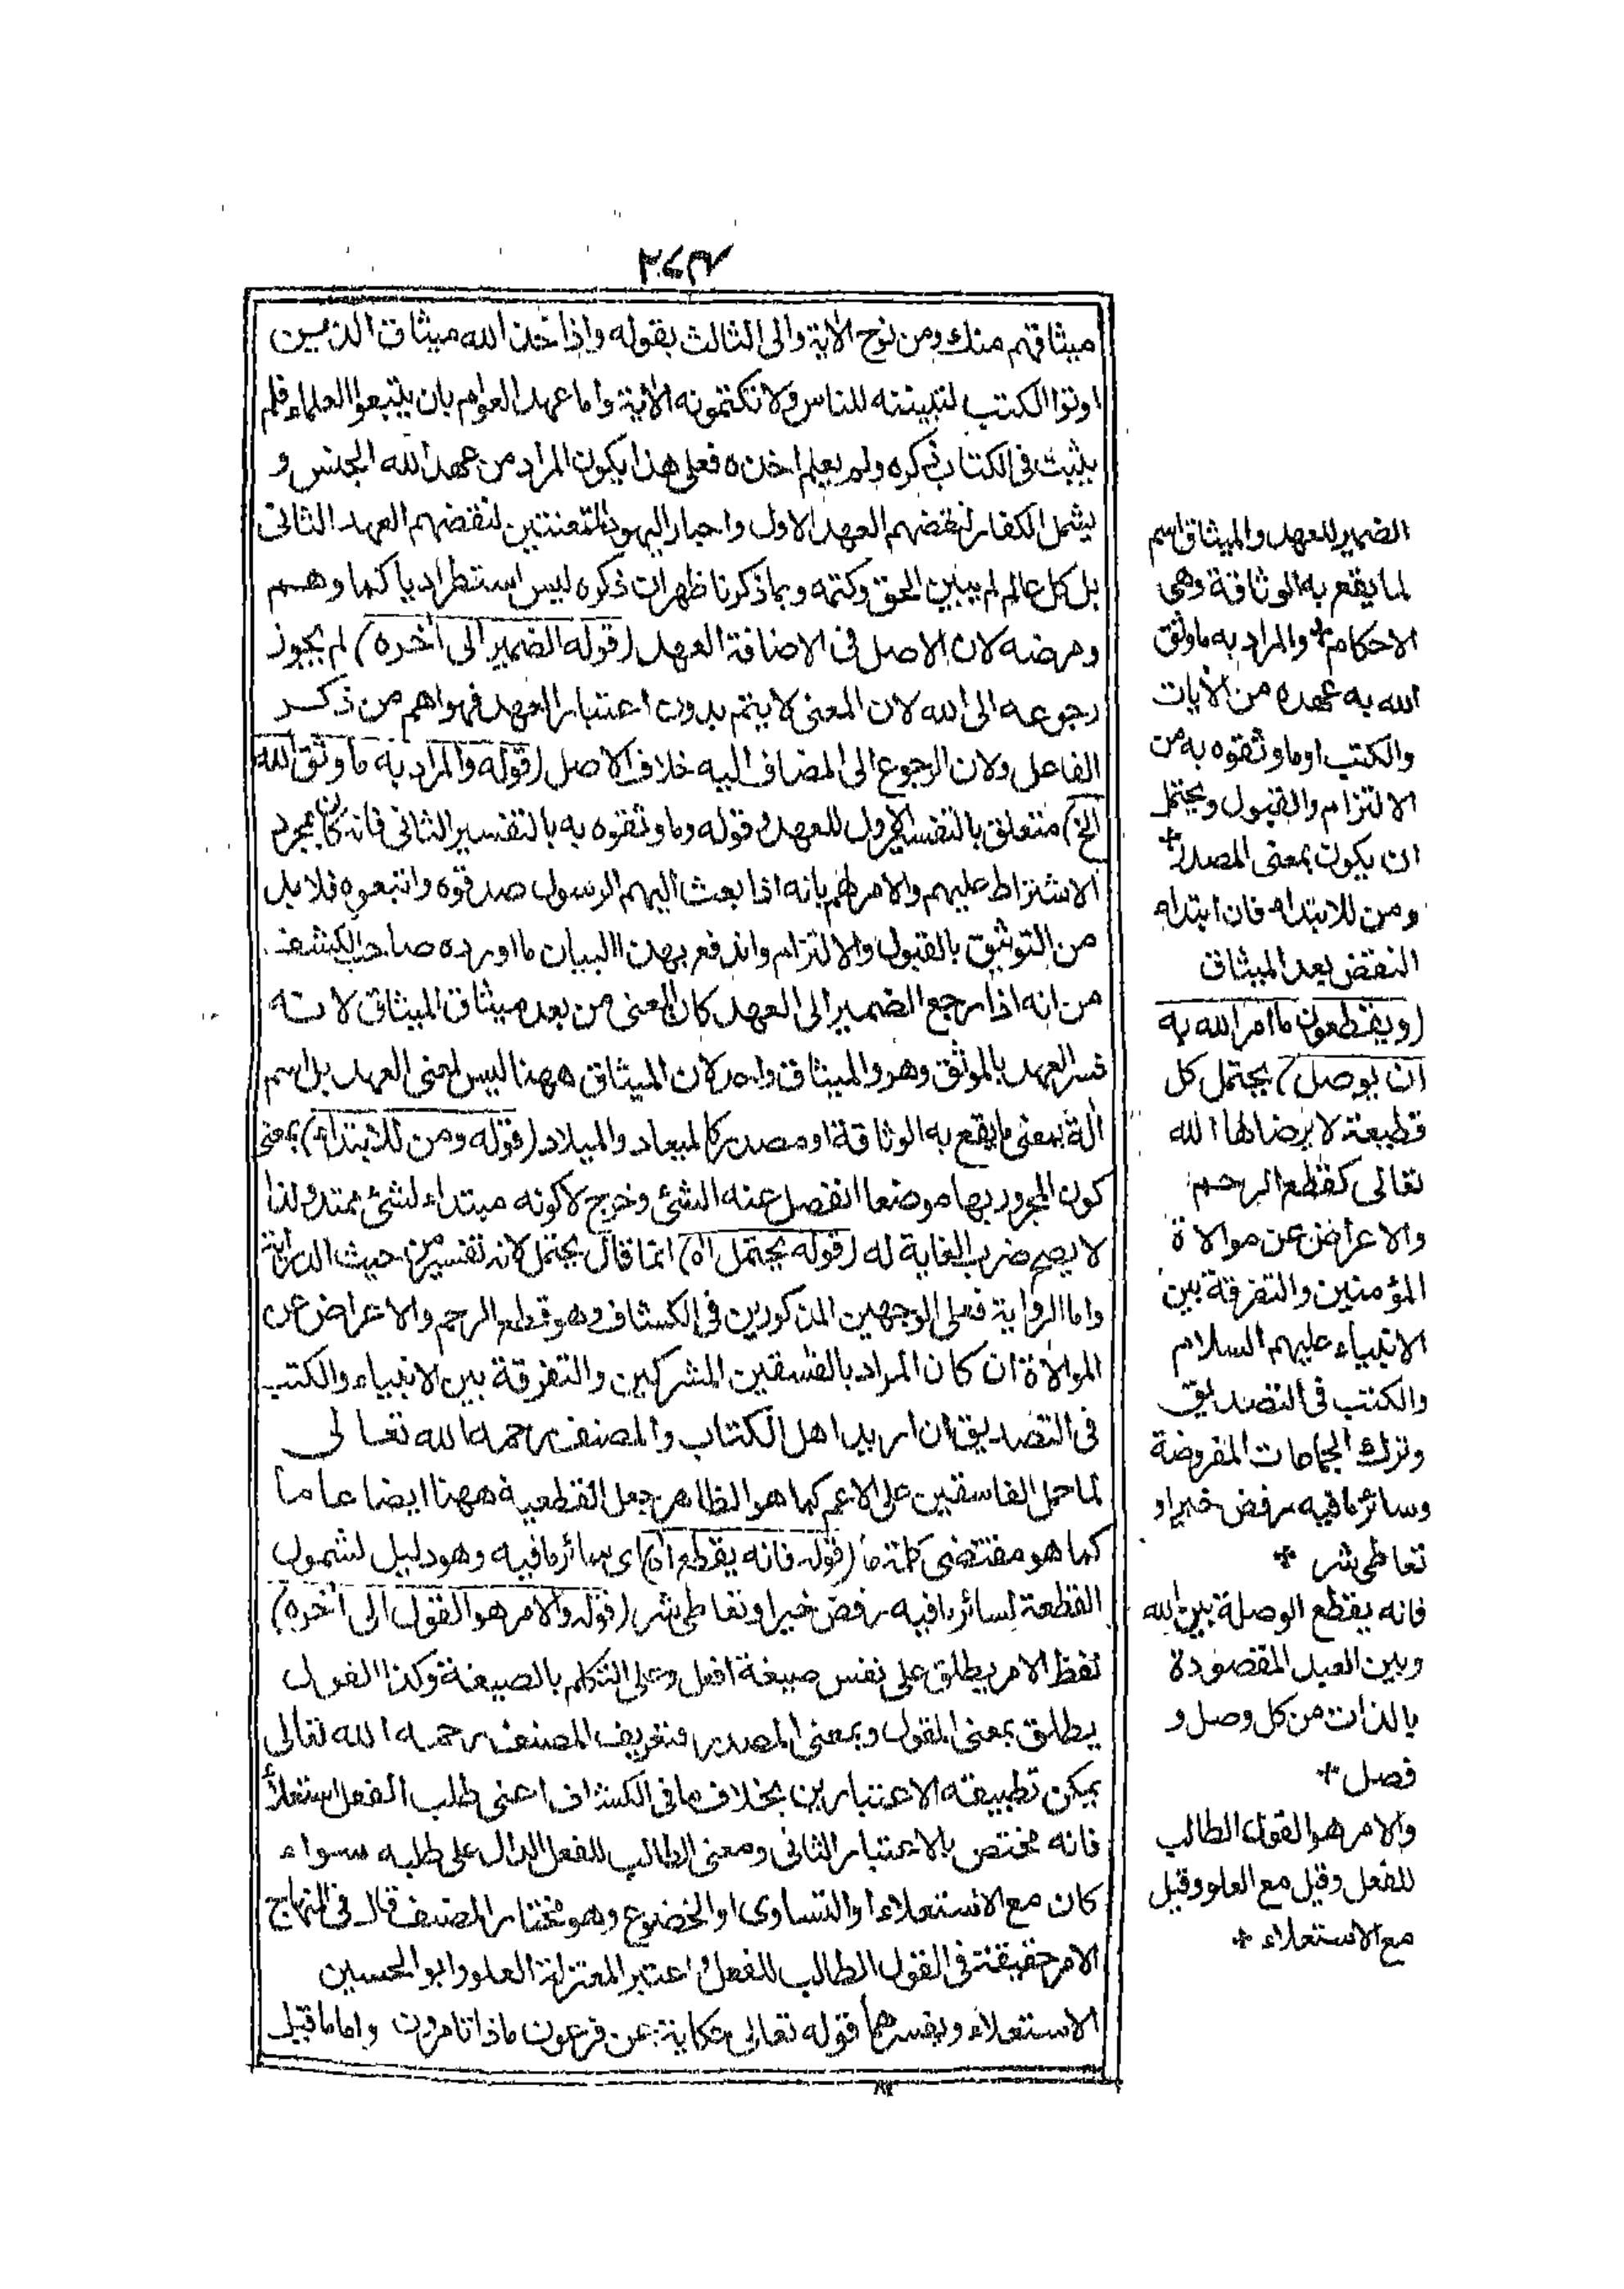 ٢٧٣
ميثاقهم منك ومن نوح الآية والى الثالث بقوله واذا خذ الله ميثاق الذين
اوتوا الكتب لتبيننه للناس ولا تكتمونه الآية واما عهد العوام بان يتبعوا العلماء فلم
يثبت فى الكتاب ذكره ولم يعلم اخذه فعلى هذا يكون المراد من عهد الله الجنس و
يشمل الكفار لنقضهم العهد الاول واحبار اليهود المتعنتين لنقضهم العهد الثانى
بل كل عالم لم يبين الحق وكتمه وبما ذكرنا ظهر ان ذكره ليس استطراديا كما وهم
ومرضه لان الاصل فى الاضافة العهد (قوله الضمير الى آخره) لم يجوز
رجوعه الى الله لان المعنى لا يتم بدون اعتبار العهد فهو اهم من ذكر
الفاعل ولان الرجوع الى المضاف اليه خلاف الاصل (قوله والمراد به ما وثق الله
الخ) متعلق بالتفسير الاول للعهد وقوله وما وثقوه به بالتفسير الثانى فانه كان مجرد
الاشتراط عليهم والامر لهم بانه اذا بعث اليهم الرسول صدقوه واتبعوه فلا بد
من التوثيق بالقبول والالتزام واندفع بهذا البيان ما اورده صاحب الكشف
من انه اذا رجع الضمير الى العهد كان المعنى من بعد ميثاق الميثاق لانه
فسر العهد بالموثق وهو والميثاق واحد لان الميثاق ههنا ليس لمعنى العهد بل اسم
آلة بمعنى ما يقع به الوثاقة او مصدر كالميعاد والميلاد (قوله ومن للابتداء) بمعنى
كون المجرور بها موضعا انفصل عنه الشئ وخرج لا كونه مبتداء لشئ ممتد ولذا
لا يصح ضرب الغاية له (قوله يحتمل اه) انما قال يحتمل لانه تفسير من حيث الدراية
واما الرواية فعلى الوجهين المذكورين فى الكشاف وهو قطع الرحم والاعراض عن
الموالاة ان كان المراد بالفسقين المشركين والتفرقة بين الانبياء والكتب
فى التصديق ان اريد اهل الكتاب والمصنف رحمه الله تعالى
لما حمل الفاسقين على الاعم كما هو الظاهر جعل القطعية ههنا ايضا عاما
كما هو مقتضى كلمة ما (قوله فانه يقطع اه) اى سائر ما فيه وهو دليل لشمول
القطعة لسائر ما فيه رفض خير او تعاطى شر (قوله والامر هو القول الى آخره)
لفظ الامر يطلق على نفس صيغة افعل وعلى التكلم بالصيغة وكذا القول
يطلق بمعنى المقول وبمعنى المصدر وتعريف المصنف رحمه الله تعالى
يمكن تطبيقه الاعتبارين بخلاف ما فى الكشاف اعنى طلب الفعل استعلاء
فانه مختص بالاعتبار الثانى ومعنى الطالب للفعل الدال على طلبه سواء
كان مع الاستعلاء او التساوى او الخضوع وهو مختار المصنف قال فى المنهاج
الامر حقيقة فى القول الطالب للفعل واعتبر المعتزلة العلو وابو الحسين
الاستعلاء ويفسرهما قوله تعالى حكاية عن فرعون ماذا تامرون واما ما قيل
الضمير للعهد والميثاق اسم
لما يقع به الوثاقة وهى
الاحكام * والمراد به ما وثق
الله به عهده من الآيات
والكتب او ما وثقوه به من
الالتزام والقبول ويحتمل
ان يكون بمعنى المصدر *
ومن للابتداء فان ابتداء
النقض بعد الميثاق
(ويقطعون ما امر الله به
ان يوصل) يحتمل كل
قطيعة لا يرضاها الله
تعالى كقطع الرحم
والاعراض عن موالاة
المؤمنين والتفرقة بين
الانبياء عليهم السلام
والكتب فى التصديق
وترك الجماعات المفروضة
وسائر ما فيه رفض خير او
تعاطى شر *
فانه يقطع الوصلة بين الله
وبين العبد المقصودة
بالذات من كل وصل و
فصل *
والامر هو القول الطالب
للفعل وقيل مع العلو وقيل
مع الاستعلاء *